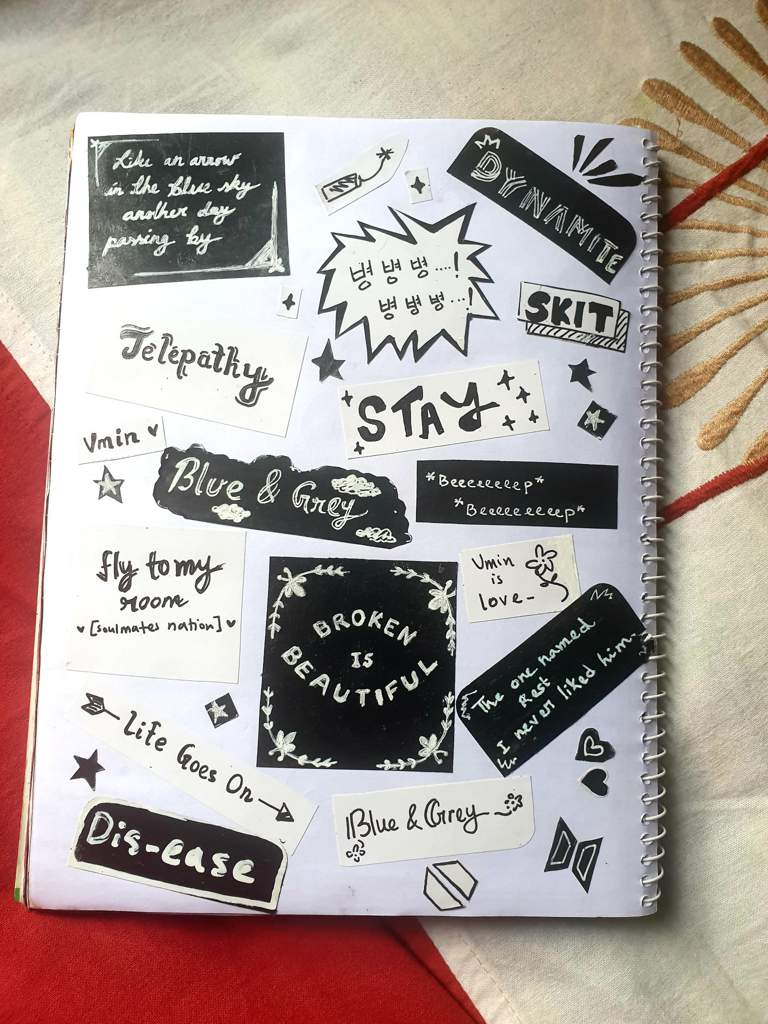 Like an arrow
in the blue sky
another day
passing by
DYNAMITE
병 병 병 ....!
병 병 병 ...!
SKIT
Telepathy
STAY
Vmin
Blue & Grey
*Beeeeeeeep*
*Beeeeeeeep*
fly to my
room
[soulmates nation]
Vmin
is
love-
BROKEN
IS
BEAUTIFUL
The one named
Rest
I never liked him.
Life Goes On
Blue & Grey
Dis-ease